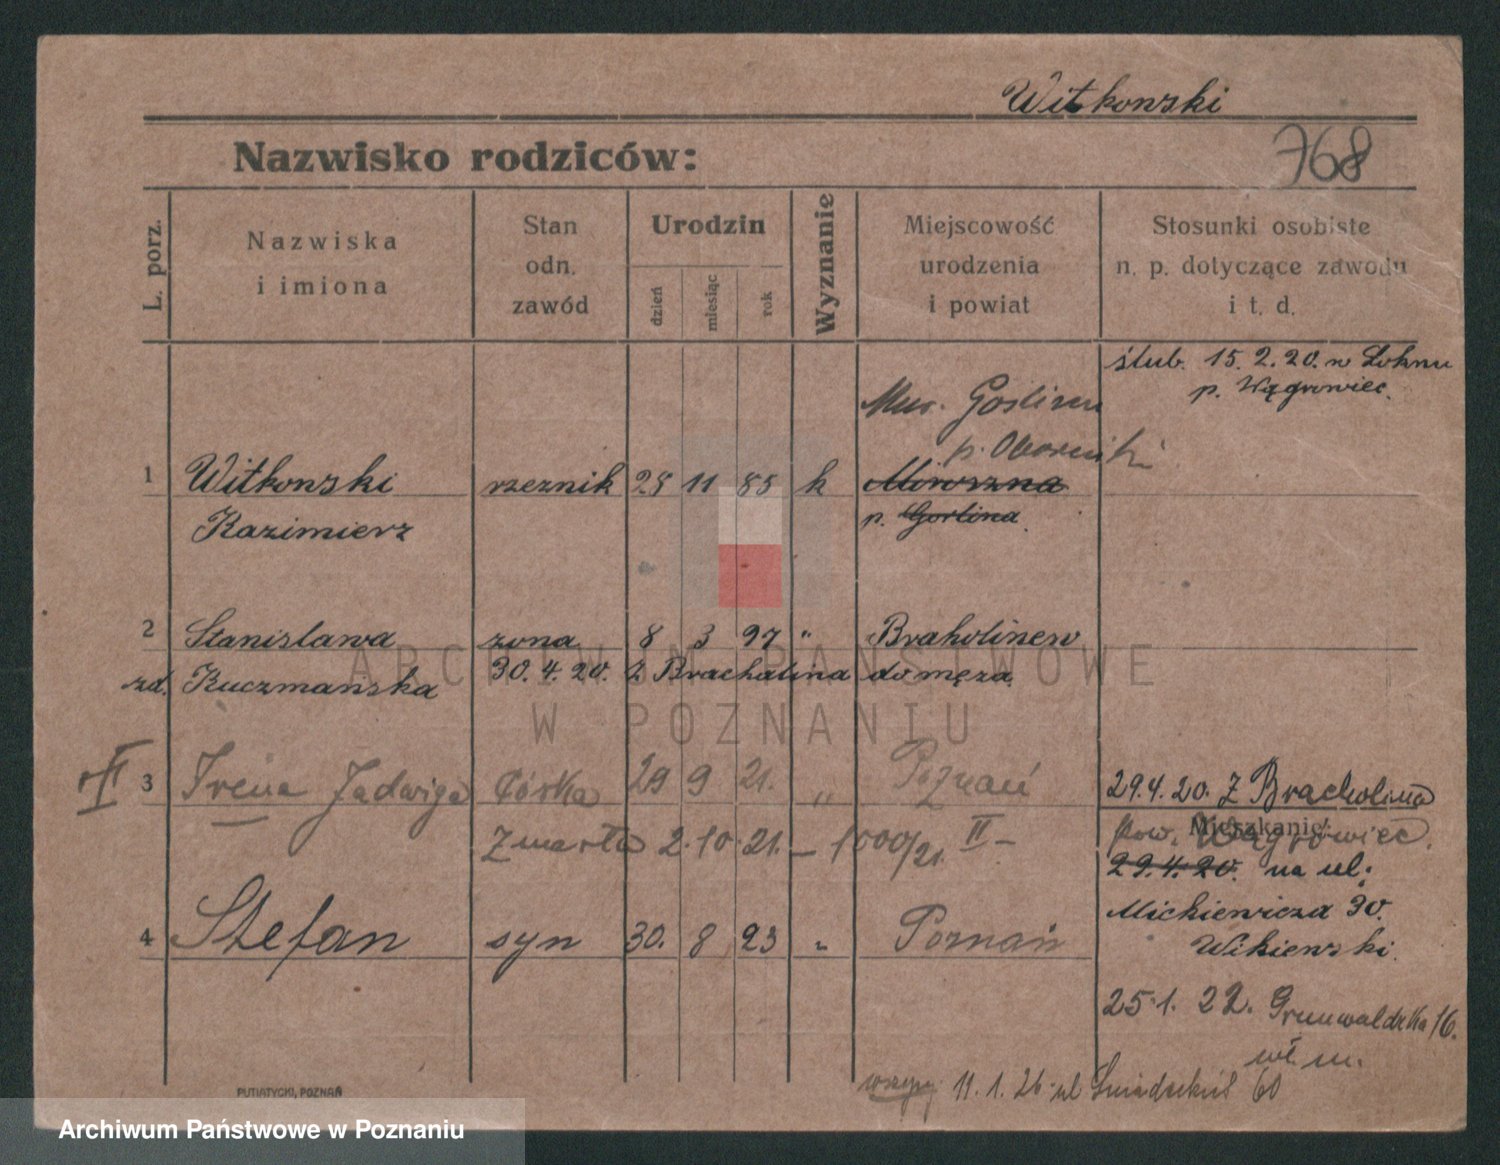 Witkowski
Nazwisko rodziców:
768
L. porz.
Nazwiska
i imiona
Stan
odn.
zawód
Urodzin
dzień
miesiąc
rok
Wyznanie
Miejscowość
urodzenia
i powiat
Stosunki osobiste
n. p. dotyczące zawodu
i t. d.
ślub. 15.2.20. w
p. Wągrowiec.
Mur. Goślina
p. Oborniki
1 Witkowski rzeznik 28 11 85 k
Kazimierz p.
2 Stanislawa zona 8 3 97 "
zd. Kuczmanska 30.4.20. Z Bracholina do męza.
II 3 Irena Jadwiga córka 29 9 21. " Poznań
29.4.20. Z Bracholina
Mieszkanie:
pow. Wągrowiec.
Zmarła 2.10.21. – 1000/21 II –
29.4.20. na ul.
Mickiewicza 30.
4 Stefan syn 30. 8 23 " Poznań
25.1.22. Grunwaldzka 16.
wł. m.
11.1.26 ul Śniadeckich 60
PUTIATYCKI, POZNAŃ
ARCHIWUM PAŃSTWOWE
W POZNANIU
Archiwum Państwowe w Poznaniu